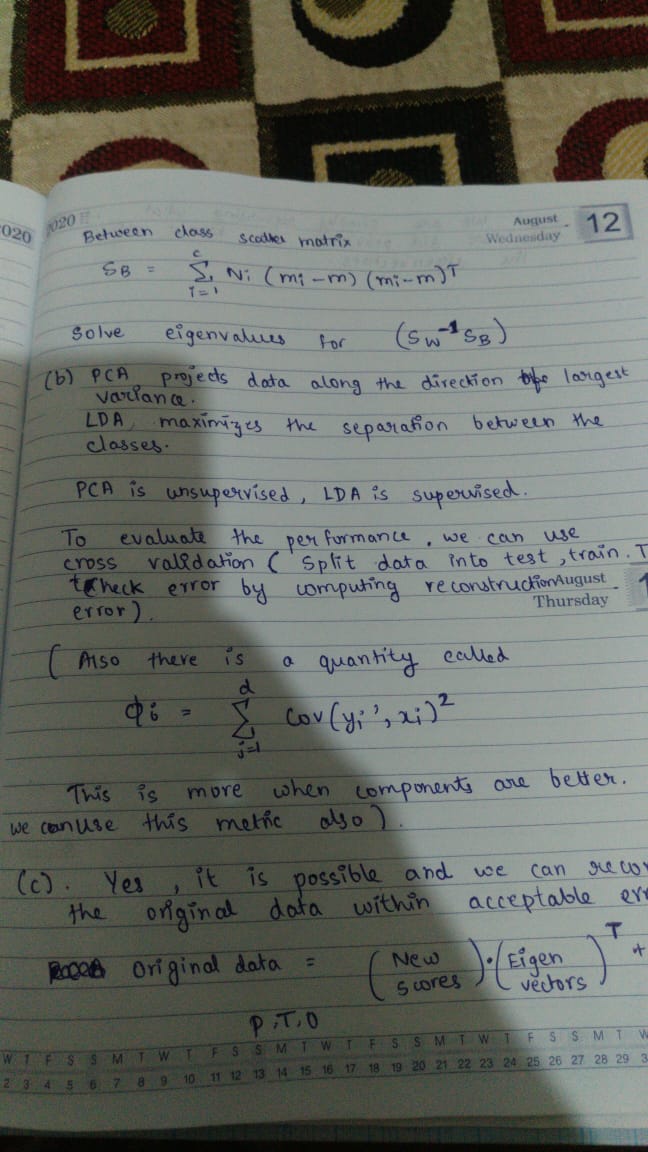 020
2020
August
Wednesday
12
Between class scatter matrix
SB = c Σ i=1 Ni (mi-m) (mi-m)T
Solve eigenvalues for (Sw-1 SB)
(b) PCA projects data along the direction of largest
variance.
LDA maximizes the separation between the
classes.
PCA is unsupervised, LDA is supervised.
To evaluate the performance, we can use
cross validation ( Split data into test, train. T
check error by computing reconstruction
August
Thursday
1
error).
( Also there is a quantity called
Φi = d Σ j=1 Cov(yi', xi)2
This is more when components are better.
we can use this metric also).
(c). Yes, it is possible and we can recov
the original data within acceptable err
original data = (New scores).(Eigen vectors)T +
P,T,O
W T F S S M T W T F S S M T W T F S S M T W T F S S M T W
2 3 4 5 6 7 8 9 10 11 12 13 14 15 16 17 18 19 20 21 22 23 24 25 26 27 28 29 3